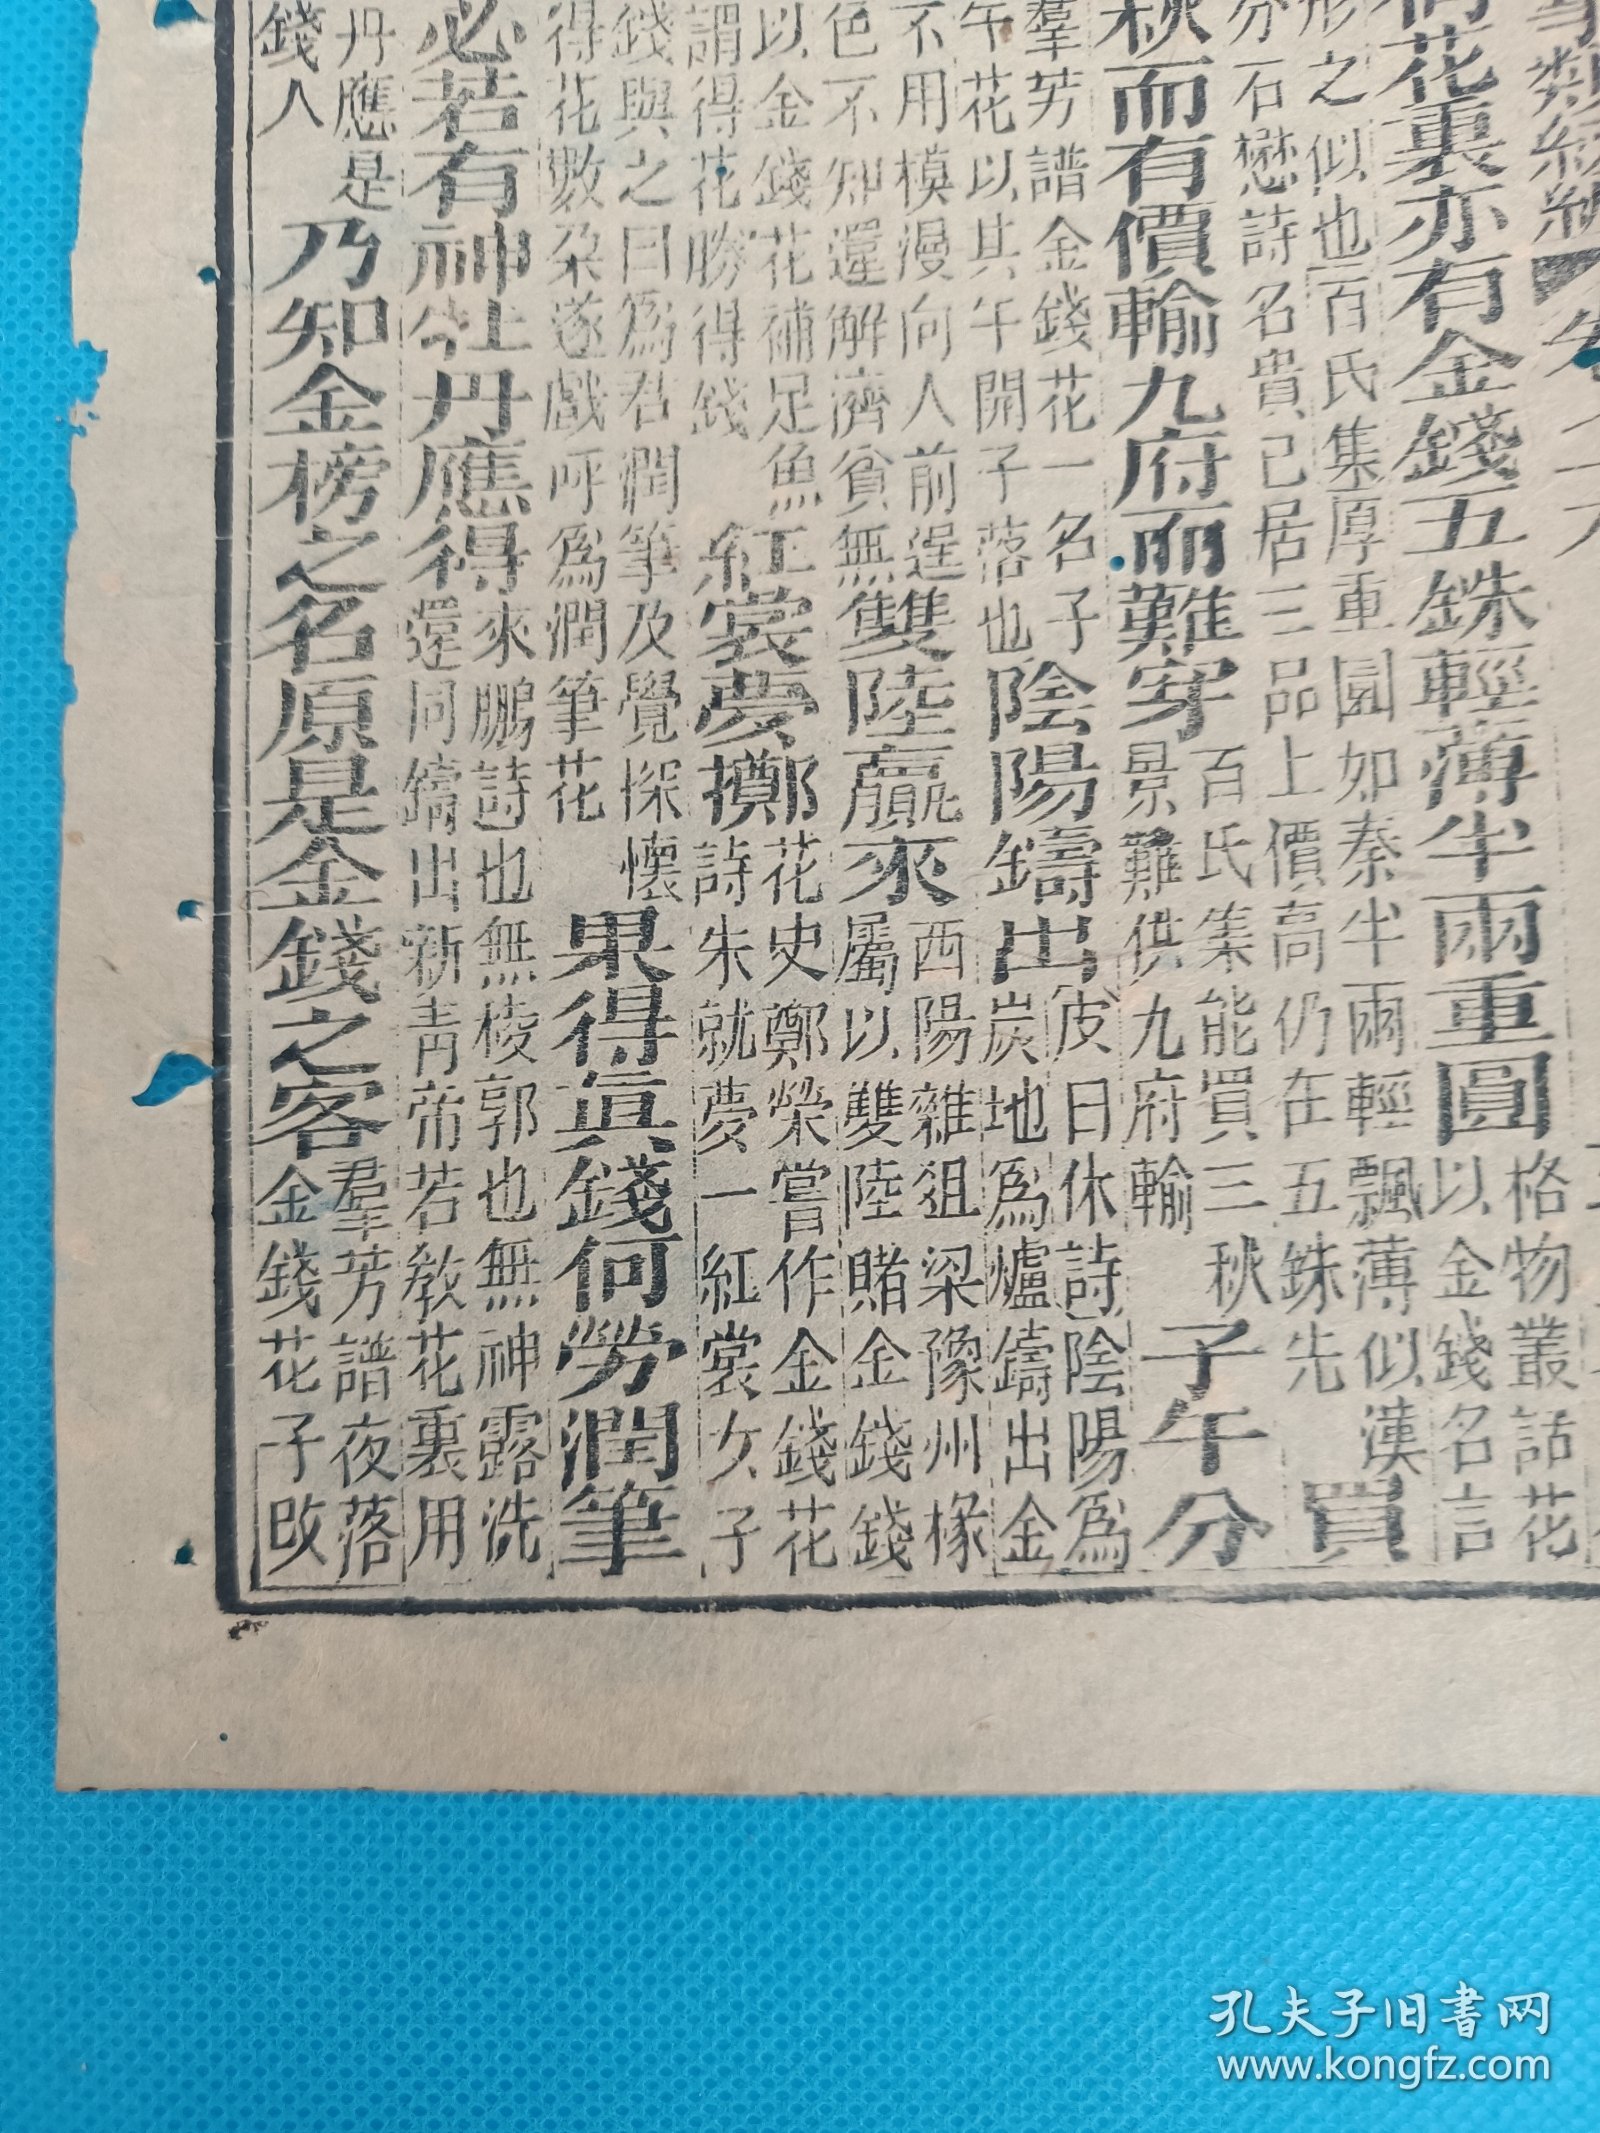 花裏亦有金錢五銖輕薄半兩重圓格物叢話花
以金錢名言
形之似也百氏集厚重圓如秦半兩輕飄薄似漢
分石懋詩名貴已居三品上價高仍在五銖先
買
秋而有價輸九府而難穿百氏集能買三秋
景難供九府輸
子午分
羣芳譜金錢花一名子
午花以其午開子落也
陰陽鑄出皮日休詩陰陽為
炭地為爐鑄出金
不用模漫向人前逞
色不知還解濟貧無
雙陸贏來西陽雜狙梁豫州椽
屬以雙陸賭金錢錢
以金錢花補足魚
謂得花勝得錢
紅裳夢擲花史鄭榮嘗作金錢花
詩朱就夢一紅裳女子
錢與之曰為君潤筆及覺探懷
得花數朶遂戲呼為潤筆花
果得真錢何勞潤筆
必若有神牡丹應得來鵬詩也無棱郭也無神露洗
還同鑄出新青帝若教花裏用
丹應是
錢人
乃知金榜之名原是金錢之客羣芳譜夜落
金錢花子改
孔夫子旧书网
www.kongfz.com